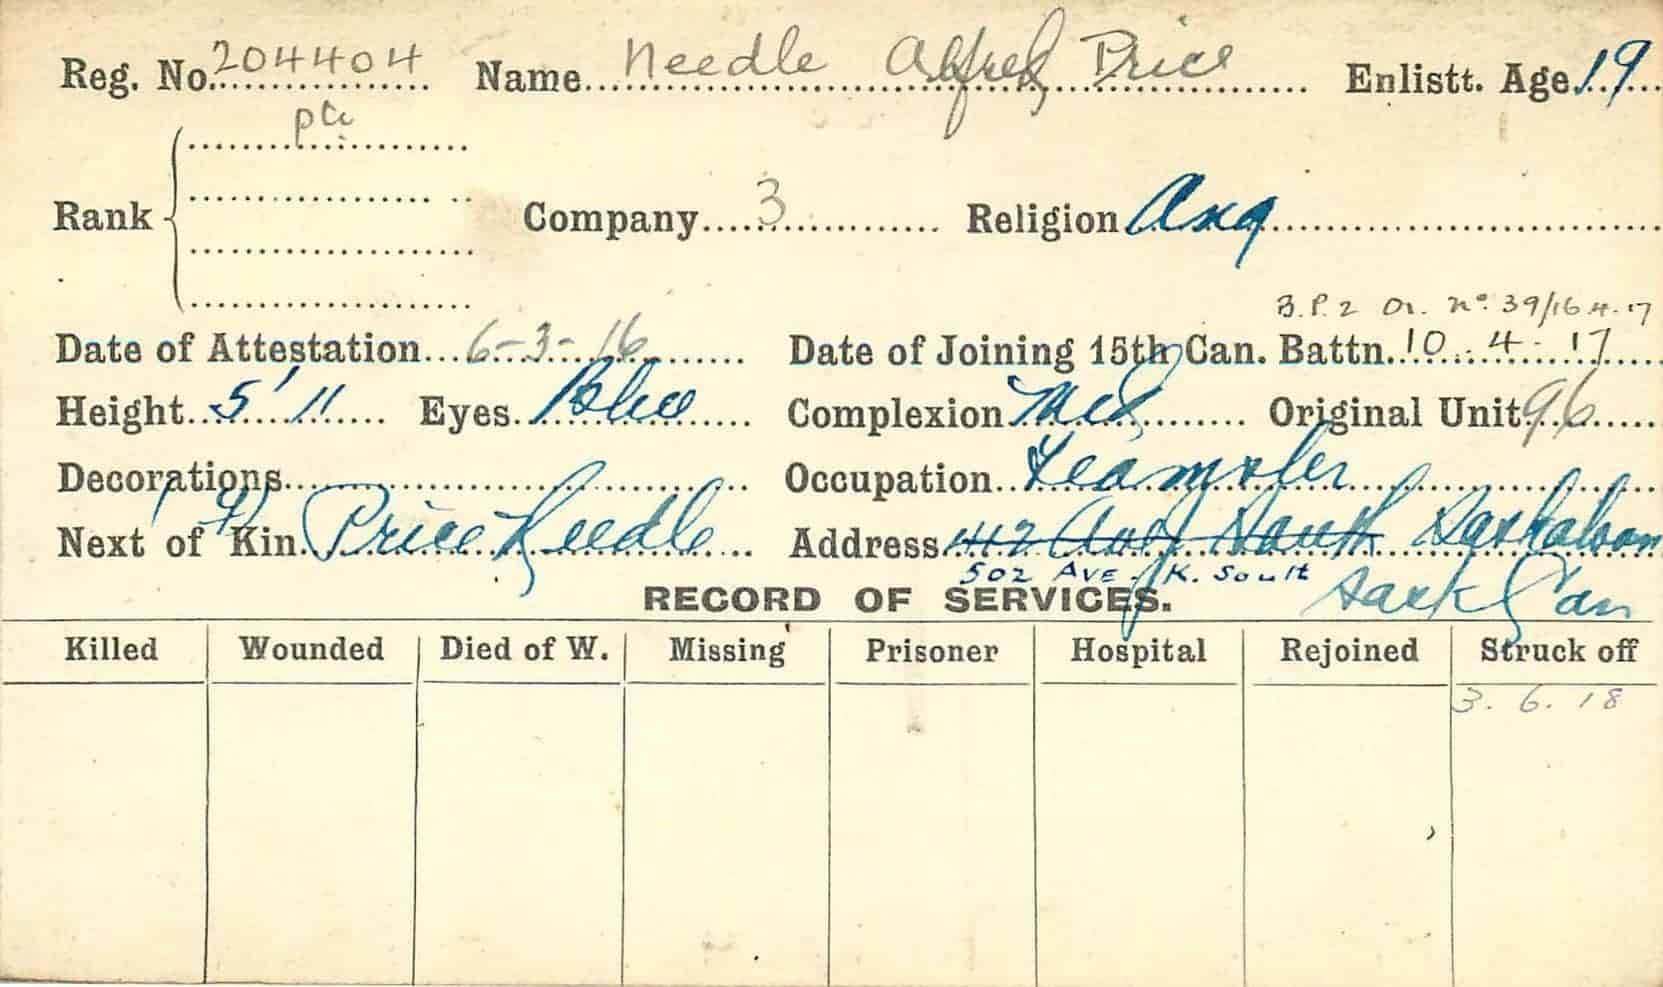 Reg. No. 204404 Name Needle Alfred Price Enlistt. Age 19
Rank pte Company 3 Religion Ang
B.P.2 Or. No. 39/16.4.17
Date of Attestation 6-3-16 Date of Joining 15th Can. Battn. 10.4.17
Height 5' 11 Eyes Blue Complexion Med Original Unit 96
Decorations Occupation Teamster
Next of Kin Price Needle Address 412 South Saskatoon
502 AVE. K. South Sask Can
RECORD OF SERVICES.
Killed Wounded Died of W. Missing Prisoner Hospital Rejoined Struck off
3. 6. 18